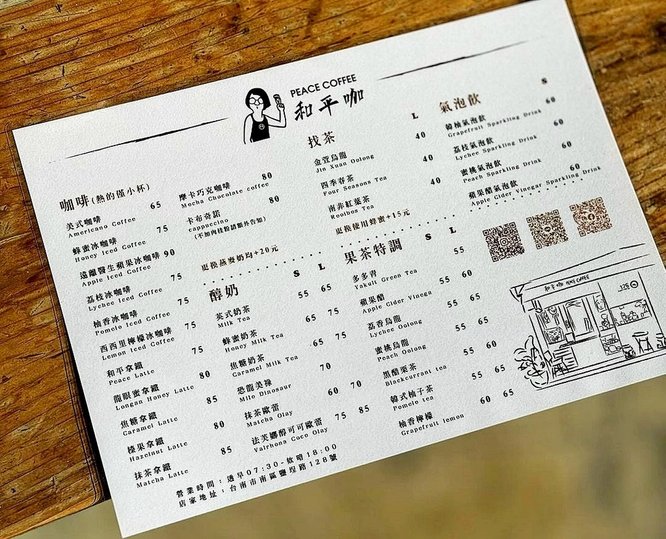 PEACE COFFEE
和平咖
咖啡(熱的僅小杯)
美式咖啡 65
Americano Coffee
蜂蜜冰咖啡 75
Honey Iced Coffee
遠離醫生蘋果冰咖啡 90
Apple Iced Coffee
荔枝冰咖啡 75
Lychee Iced Coffee
柚香冰咖啡 75
Pomelo Iced Coffee
西西里檸檬冰咖啡 75
Lemon Iced Coffee
和平拿鐵 75
Peace Latte
龍眼蜜拿鐵 80
Longan Honey Latte
焦糖拿鐵 85
Caramel Latte
榛果拿鐵 80
Hazelnut Latte
抹茶拿鐵 85
Matcha Latte
摩卡巧克咖啡 80
Mocha Chocolate coffee
卡布奇諾 80
cappuccino
(不加肉桂粉請額外告知)
更換燕麥奶均+20元
醇奶 S L
英式奶茶 55 65
Milk Tea
蜂蜜奶茶 65 75
Honey Milk Tea
焦糖奶茶 65 75
Caramel Milk Tea
恐龍美祿 60 70
Milo Dinosaur
抹茶歐蕾 60 70
Matcha Olay
法芙娜醇可可歐蕾 75 85
Valrhona Coco Olay
找茶 L
金萱烏龍 40
Jin Xuan Oolong
四季春茶 40
Four Seasons Tea
南非紅葉茶 40
Rooibos Tea
更換使用蜂蜜+15元
果茶特調 S L
多多青 55 65
Yakult Green Tea
蘋果醋 55 65
Apple Cider Vinega
荔香烏龍 55 65
Lychee Oolong
蜜桃烏龍 55 65
Peach Oolong
黑醋栗茶 55 65
Blackcurrant tea
韓式柚子茶 55 65
Pomelo tea
柚香檸檬 60 65
Grapefruit lemon
氣泡飲 S
韓柚氣泡飲 60
Grapefruit Sparkling Drink
荔枝氣泡飲 60
Lychee Sparkling Drink
蜜桃氣泡飲 60
Peach Sparkling Drink
蘋果醋氣泡飲 60
Apple Cider Vinegar Sparkling Drink
營業時間：透早07:30-欸晡18:00
店家地址：台南市南區鹽埕路128號